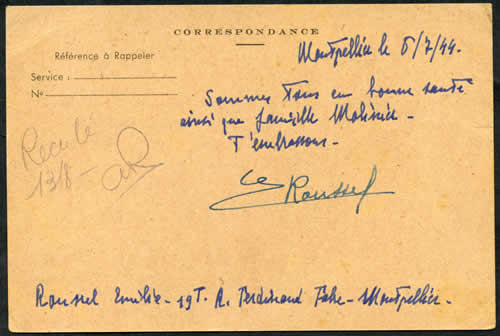 CORRESPONDANCE
Référence à Rappeler
Service :
No
Montpellier le 6/7/44.
Sommes tous en bonne santé
ainsi que famille Molinié -
T'embrassons -
Roussel
Reçu le
13/8 -
aR
Roussel Emilie - 19 R. Ferdinand Fabre - Montpellier -